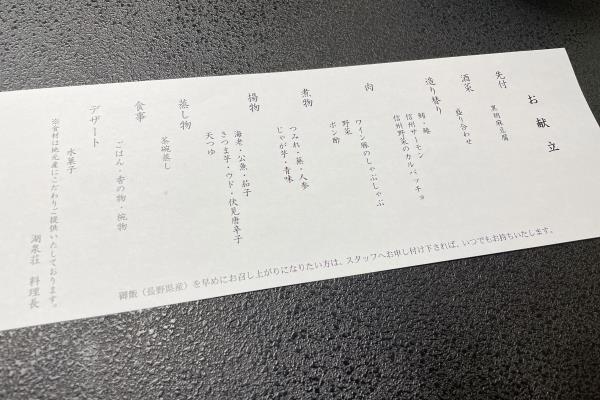 お献立
先付
黒胡麻豆腐
酒菜
盛り合わせ
造り替り
信州サーモン
信州野菜のカルパッチョ
肉
ワイン豚のしゃぶしゃぶ
野菜
ポン酢
煮物
つみれ・蕪・人参
じゃが芋・青味
揚物
海老・公魚・茄子
さつま芋・ウド・伏見唐辛子
天つゆ
蒸し物
茶碗蒸し
食事
ごはん・香の物・椀物
デザート
水菓子
※食材は地元産にこだわりご提供いたしております。
湖泉荘 料理長
御飯(長野県産)を早めにお召し上がりになりたい方は、スタッフへお申し付け下されば、いつでもお持ちいたします。